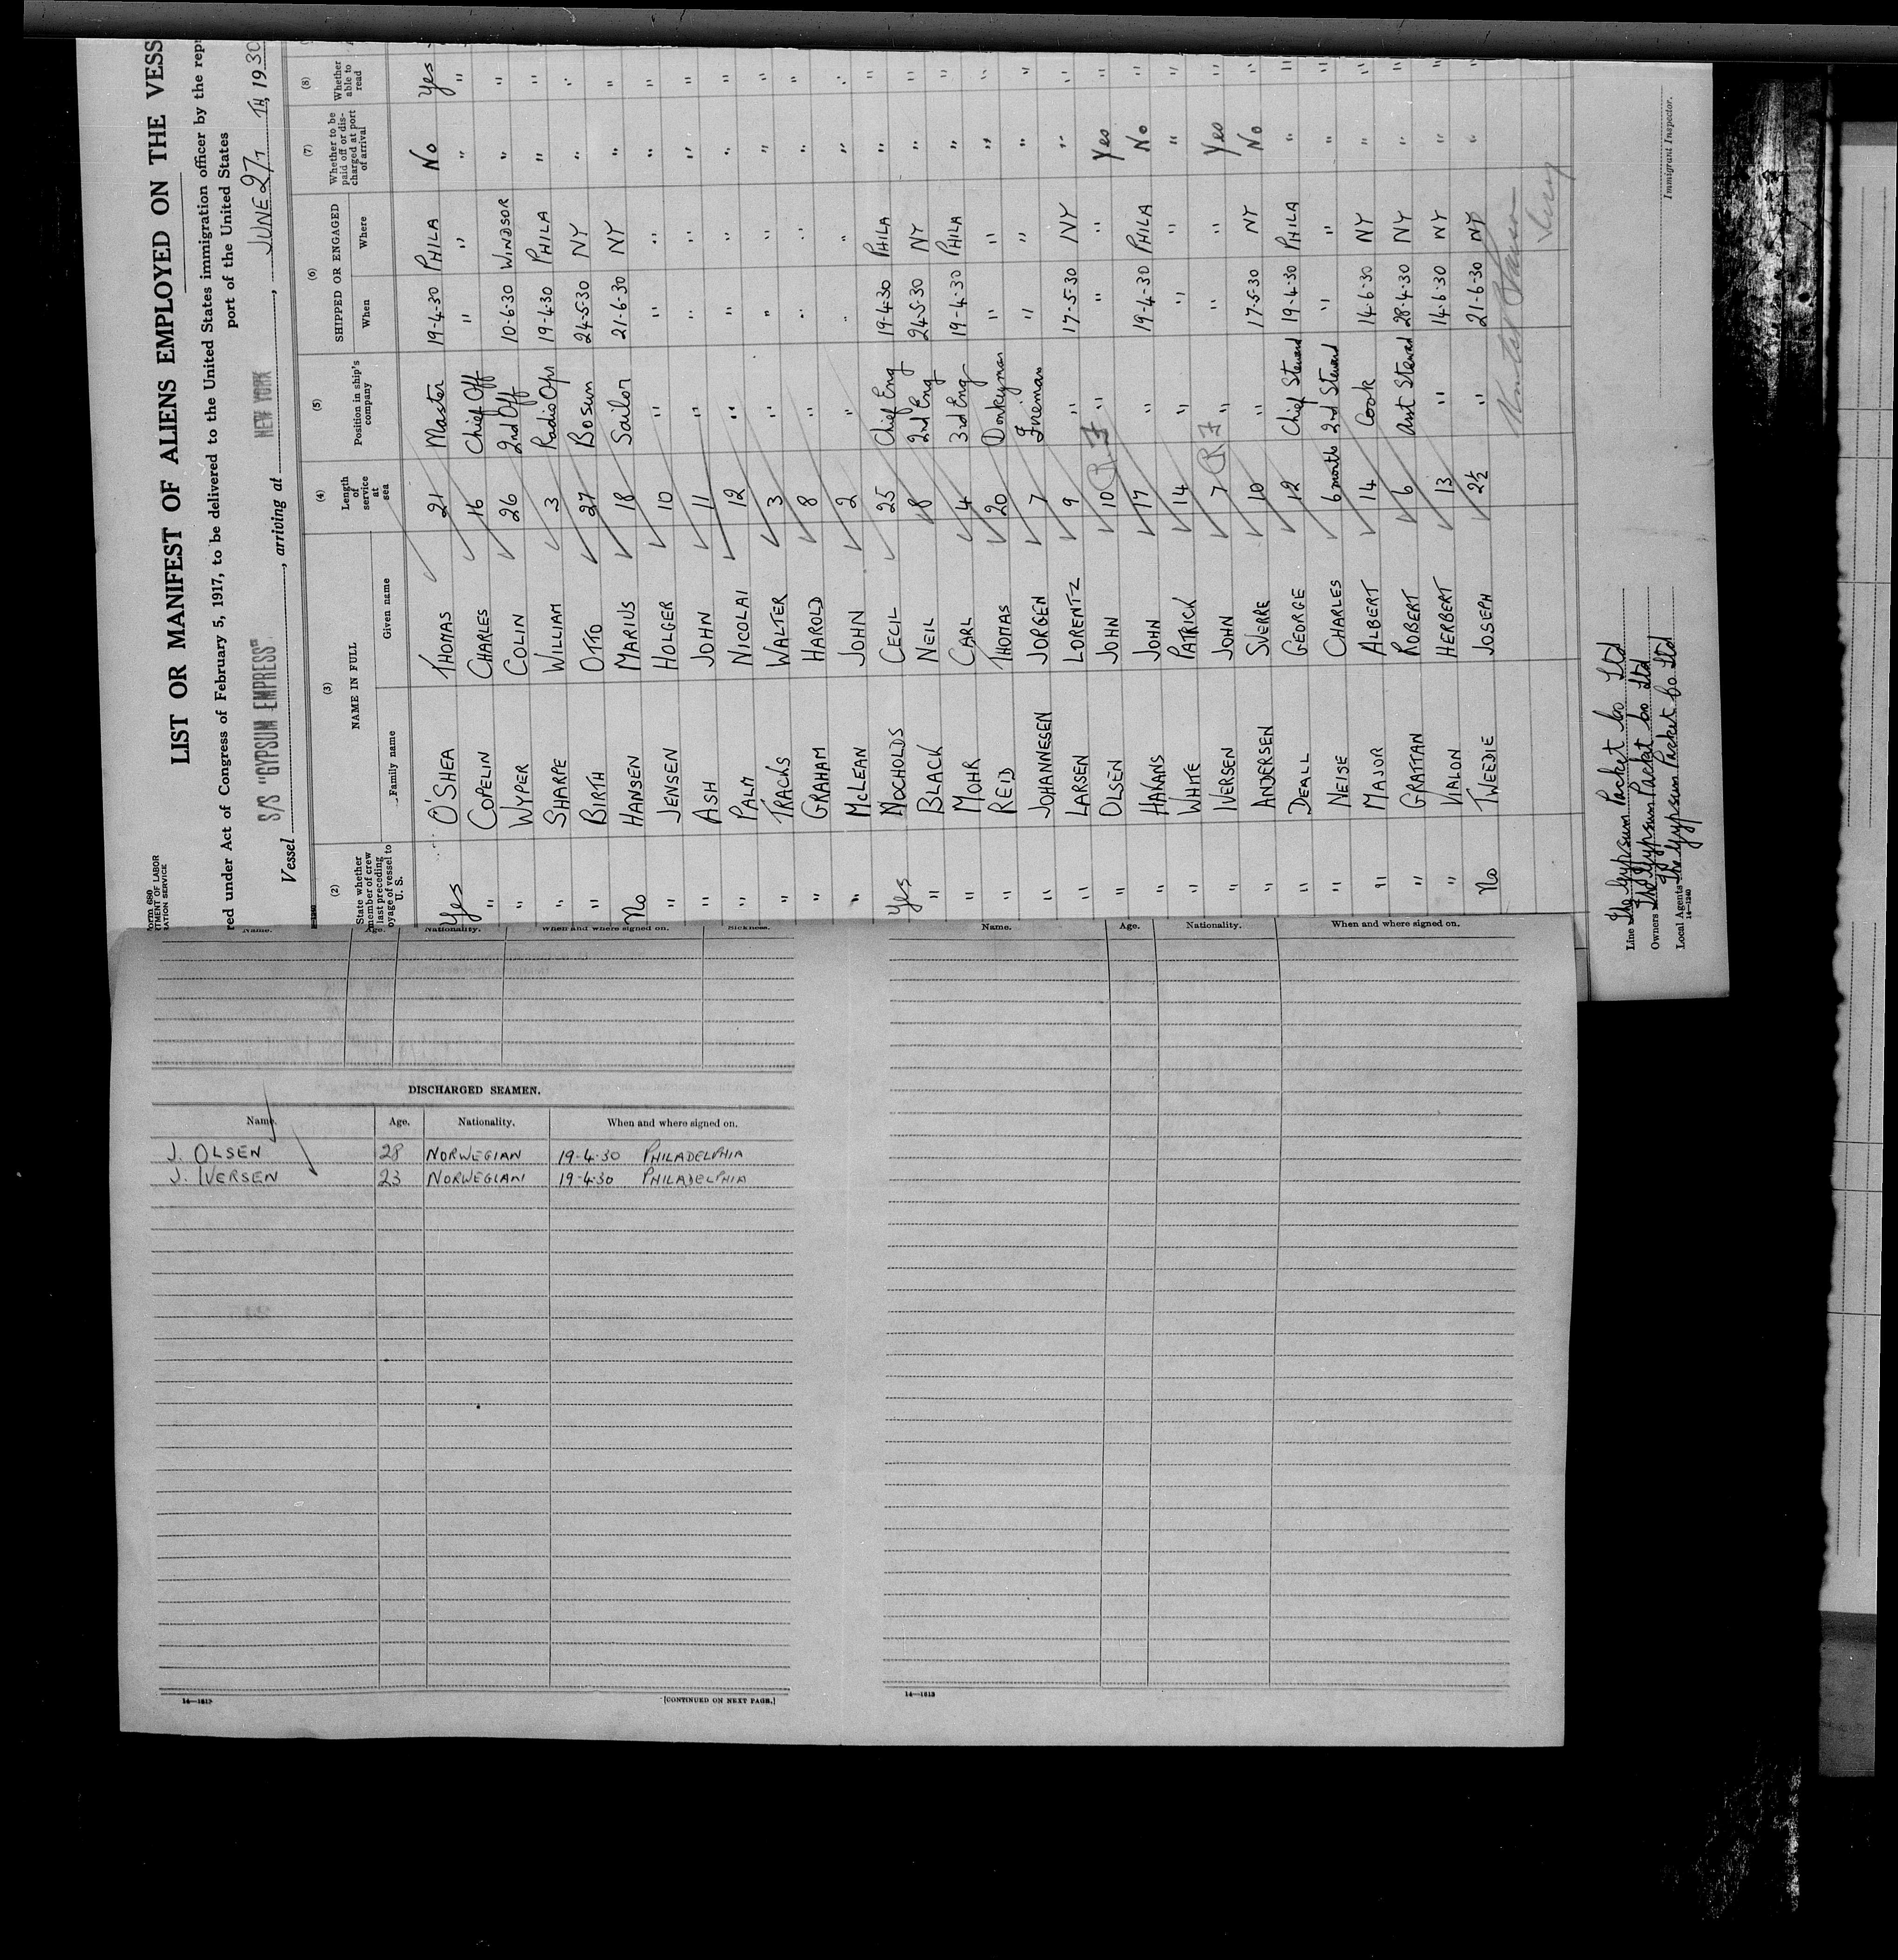 LIST OR MANIFEST OF ALIENS EMPLOYED ON THE VESS
red under Act of Congress of February 5, 1917, to be delivered to the United States immigration officer by the repr
port of the United States
Vessel S/S "GYPSUM EMPRESS", arriving at NEW YORK, JUNE 27TH, 1930
(2) (3) (4) (5) (6) (7) (8)
State whether member of crew last preceding voyage of vessel to U. S. NAME IN FULL Length of service at sea Position in ship's company SHIPPED OR ENGAGED Whether to be paid off or discharged at port of arrival Whether able to read
Family name Given name When Where
Yes O'SHEA THOMAS 21 Master 19-4-30 PHILA No Yes
" COPELIN CHARLES 16 Chief Off " " " "
" WYPER COLIN 26 2nd Off 10-6-30 WINDSOR " "
" SHARPE WILLIAM 3 Radio Opr 19-4-30 PHILA " "
" BIRTH OTTO 27 Bosun 24-5-30 NY " "
No HANSEN MARIUS 18 Sailor 21-6-30 NY " "
" JENSEN HOLGER 10 " " " " "
" ASH JOHN 11 " " " " "
" PALM NICOLAI 12 " " " " "
" TRACKS WALTER 3 " " " " "
" GRAHAM HAROLD 8 " " " " "
" McLEAN JOHN 2 " " " " "
Yes NOCHOLDS CECIL 25 Chief Eng 19-4-30 PHILA " "
" BLACK NEIL 8 2nd Eng 24-5-30 NY " "
" MOHR CARL 4 3rd Eng 19-4-30 PHILA " "
" REID THOMAS 20 Donkeyman " " " "
" JOHANNESEN JORGEN 7 Fireman " " " "
" LARSEN LORENTZ 9 " 17-5-30 NY " "
" OLSEN JOHN 10 " " " Yes "
" HAKANS JOHN 17 " 19-4-30 PHILA No "
" WHITE PATRICK 14 " " " " "
" IVERSEN JOHN 7 " " " Yes "
" ANDERSEN SVERRE 10 " 17-5-30 NY No "
" DEALL GEORGE 12 Chief Steward 19-4-30 PHILA " "
" NEISE CHARLES 6 months 2nd Steward " " " "
" MAJOR ALBERT 14 Cook 14-6-30 NY " "
" GRATTAN ROBERT 6 Asst Steward 28-4-30 NY " "
" VIALON HERBERT 13 " 14-6-30 NY " "
No TWEEDIE JOSEPH 2½ " 21-6-30 NY " "
Line The Gypsum Packet Co Ltd
Owners The Gypsum Packet Co Ltd
Local Agents The Gypsum Packet Co Ltd
14—1240
Immigrant Inspector.
Name. Age. Nationality. When and where signed on. Sickness.
DISCHARGED SEAMEN.
Name. Age. Nationality. When and where signed on.
J. OLSEN 28 NORWEGIAN 19-4-30 PHILADELPHIA
J. IVERSEN 23 NORWEGIAN 19-4-30 PHILADELPHIA
14—1813 [CONTINUED ON NEXT PAGE.]
Name. Age. Nationality. When and where signed on.
14—1813